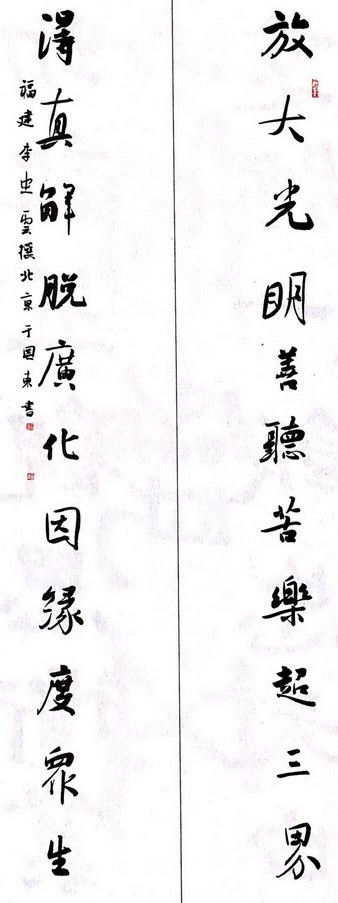 放大光明善聽苦樂超三界
得真解脫廣化因緣度眾生
福建李忠雲撰北京于國東書